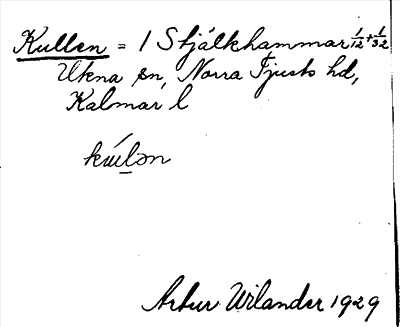 Kullen = 1 Stjälkhammar 1/12 + 1/32
Ukna sn, Norra Tjusts hd,
Kalmar l
kúlən
Artur Wilander 1929